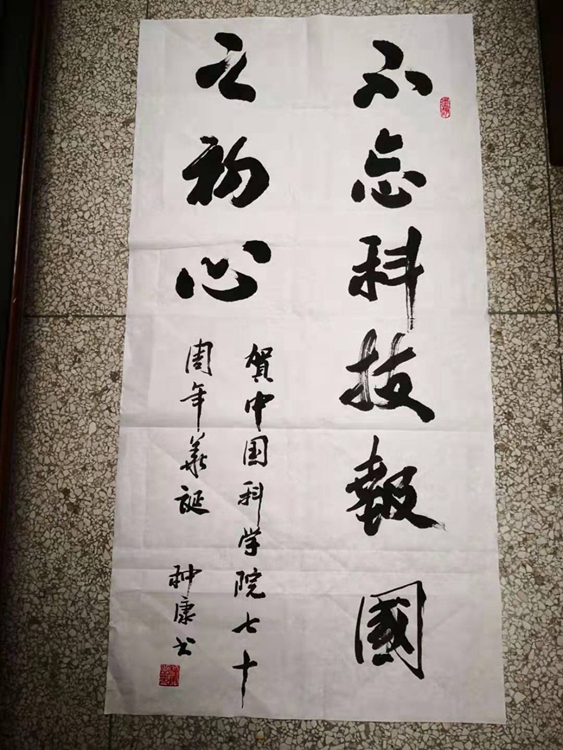 不忘科技報國
之初心
賀中国科学院七十
周年華誕
种康书